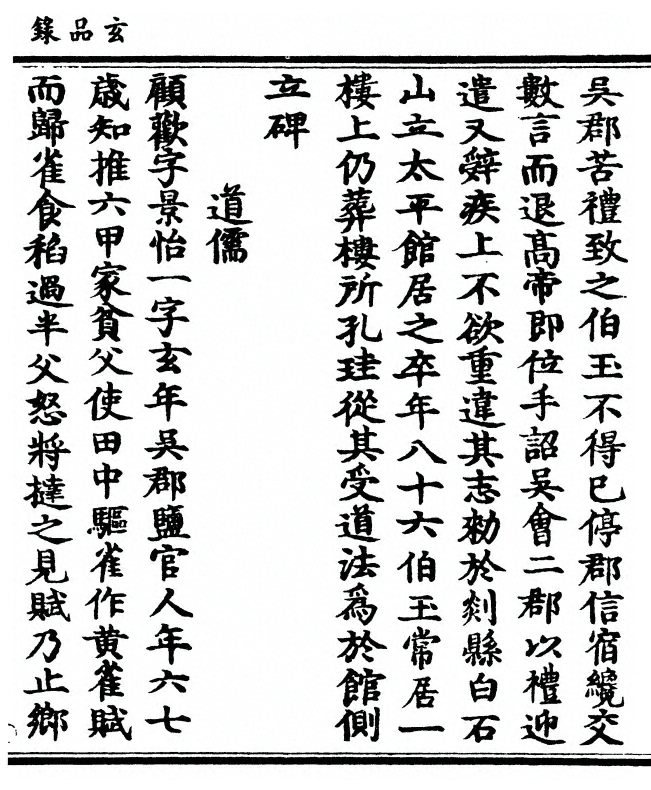 玄品錄
吳郡苦禮致之伯玉不得已停郡信宿纔交
數言而退高帝即位手詔吳會二郡以禮迎
遣又辭疾上不欲重違其志勑於剡縣白石
山立太平館居之卒年八十六伯玉常居一
樓上仍葬樓所孔珪從其受道法爲於館側
立碑
道儒
顧歡字景怡一字玄年吳郡鹽官人年六七
歲知推六甲家貧父使田中驅雀作黃雀賦
而歸雀食稻過半父怒將撻之見賦乃止鄉